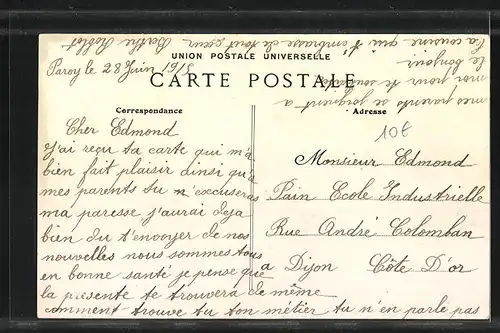 UNION POSTALE UNIVERSELLE
CARTE POSTALE
Paroy le 28 Juin 1918
Correspondance
Cher Edmond
J'ai reçu ta carte qui m'a
bien fait plaisir dinsi qu'a
mes parents tu m'excuseras
ma paresse j'aurai deja
bien du t'envoyer de nos
nouvelles nous sommes tous
en bonne santé je pense que
la présente te trouvera de même
comment trouve tu ton métier tu n'en parle pas
mes parents se joignent a
moi pour te souhaiter
le bonjour
ta cousine qui t'embrasse de tout cœur Berthe
Adresse
10€
Monsieur Edmond
Pain Ecole Industrielle
Rue André Colomban
a Dijon Côte D'or